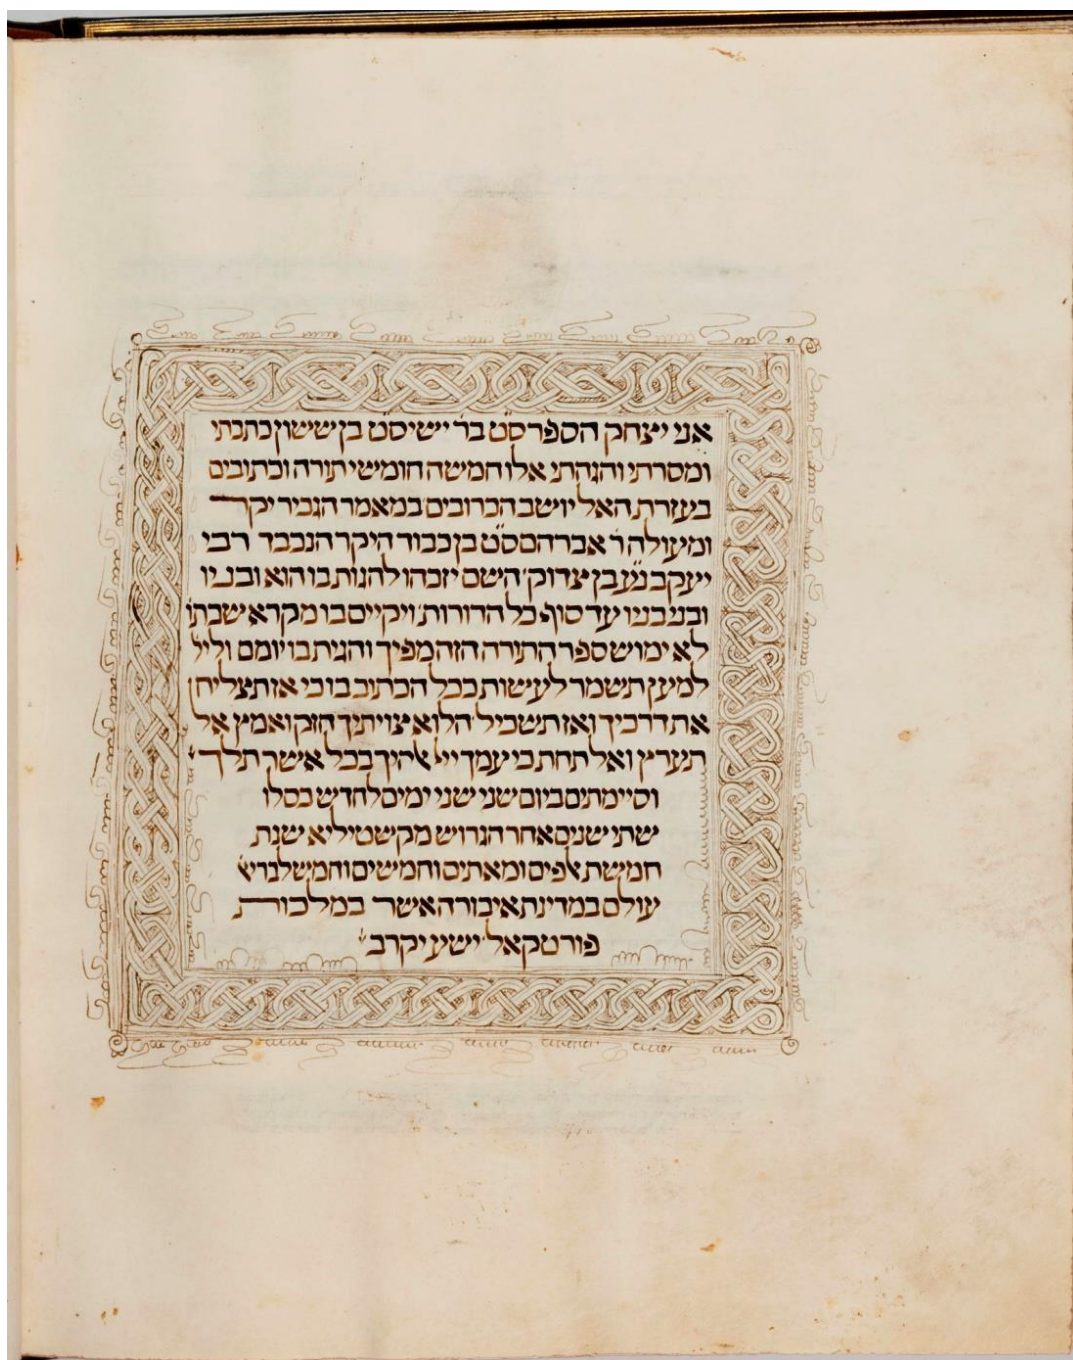 אני יצחק הספר ס״ט בר׳ ישי ס״ט בן ששון כתבתי
ומסרתי והגהתי אלו חמשה חומשי תורה וכתובים
בעזרת האל יושב הכרובים במאמר הגביר יקר
ומעולה ר׳ אברהם ס״ט בן כבוד היקר הנכבד רבי
יעקב נ״ע בן צדוק׳ השם יזכהו להגות בו הוא ובניו
ובני בניו עד סוף כל הדורות׳ ויקיים בו מקרא שכתו׳
לא ימוש ספר התורה הזה מפיך והגית בו יומם וליל׳
למען תשמר לעשות ככל הכתוב בו כי אז תצליח
את דרכיך ואז תשכיל׳ הלוא צויתיך חזק ואמץ אל
תערץ ואל תחת כי עמך ייי אהיך בכל אשר תלך׃
וסיימתים ביום שני שני ימים לחדש כסלו
שתי שנים אחר הגרוש מקשטיליא שנת
חמשת אפים ומאתים וחמישים וחמש לברי׳
עולם במדינת איבורה אשר במלכות
פורטקאל׳ ישע יקרב׃